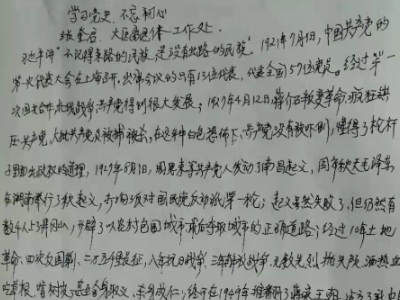 学习党史 不忘初心
大医 退休工作处
"不记得来路的民族,是没有出路的民族"。1921年7月1日,中国共产党的
第一次代表大会在上海召开,出席会议的只有13位代表,代表全国57位党员。经过第一
次国共合作北伐战争,共产党得到很大发展;1927年4月12日,蒋介石叛变革命,疯狂镇
压共产党,大批共产党员被捕被杀,在这种白色恐怖下,共产党没有被吓倒,懂得了枪杆
子里面出政权的道理,1927年8月1日,周恩来等共产党人发动了南昌起义,同年秋天毛泽东
在湖南举行了秋收起义,打响了反对国民党反动派第一枪;起义虽然失败了,但仍然有
数千人上了井冈山,开辟了以农村包围城市最后夺取城市的正确道路;经过10年土地
革命,四次反围剿、二万五千里长征,八年抗日战争、三年解放战争,无数先烈抛头颅洒热血
吃草根、啃树皮,甚至舍身取义,杀身成仁,终于在1949年推翻了蒋家王朝